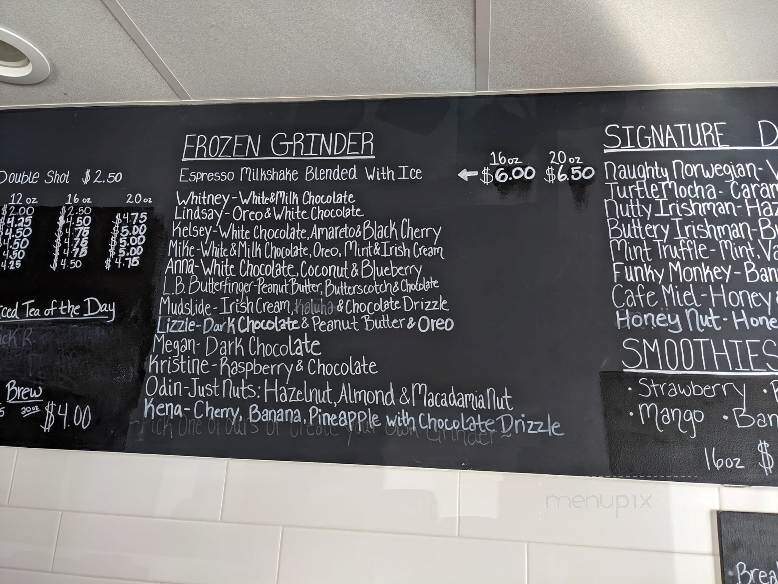 Double Shot $2.50
12 oz 16 oz 20oz
$2.00 $2.50
$4.25 $4.50 $4.75
$4.50 $4.75 $5.00
$4.50 $4.75 $5.00
$4.50 $4.75 $5.00
4.25 $4.50 $4.75
Iced Tea of the Day
Brew
20oz $4.00
FROZEN GRINDER
16oz 20oz
Espresso Milkshake Blended With Ice ← $6.00 $6.50
Whitney-White&Milk Chocolate
Lindsay-Oreo&White Chocolate
Kelsey-White Chocolate, Amareto&Black Cherry
Mike-White & Milk Chocolate, Oreo, Mint&Irish Cream
Anna-White Chocolate, Coconut & Blueberry
L.B. Butterfinger-Peanut Butter, Butterscotch& Chocolate
Mudslide-Irish Cream, Kaluha & Chocolate Drizzle
Lizzie-Dark Chocolate & Peanut Butter & Oreo
Megan-Dark Chocolate
Kristine-Raspberry & Chocolate
Odin-Just Nuts: Hazelnut, Almond & Macadamia Nut
Kena-Cherry, Banana, Pineapple with Chocolate Drizzle
Pick One of ours or Create your Own Grinder
SIGNATURE D
Naughty Norwegian-
Turtle Mocha-Caram
Nutty Irishman-Haz
Buttery Irishman-B
Mint Truffle-Mint, Va
Funky Monkey-Ban
Cafe Miel-Honey
Honey Nut-Hone
SMOOTHIES
•Strawberry •
•Mango •Ban
16oz $
menupix
Brea